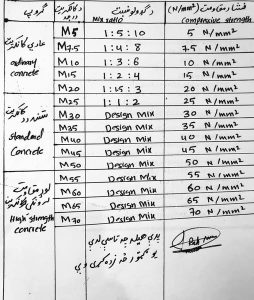 ګروپ
د کانکریټ درجه
د ګډولو نسبت
Mix ratio
فشاري مقاومت (N/mm²)
Compressive strength
M5 1:5:10 5 N/mm²
عادي کانکریټ M7.5 1:4:8 7.5 N/mm²
ordinary M10 1:3:6 10 N/mm²
concrete M15 1:2:4 15 N/mm²
M20 1:1.5:3 20 N/mm²
M25 1:1:2 25 N/mm²
M30 Design Mix 30 N/mm²
M35 Design Mix 35 N/mm²
Standard M40 Design Mix 40 N/mm²
Concrete M45 Design Mix 45 N/mm²
M50 Design Mix 50 N/mm²
M55 Design Mix 55 N/mm²
M60 Design Mix 60 N/mm²
High strength M65 Design Mix 65 N/mm²
concrete M70 Design Mix 70 N/mm²